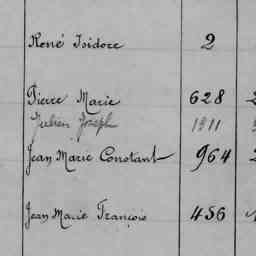 René Isidore 2
Pierre Marie 628
Julien Joseph 1911
Jean Marie Constant 964
Jean Marie François 456